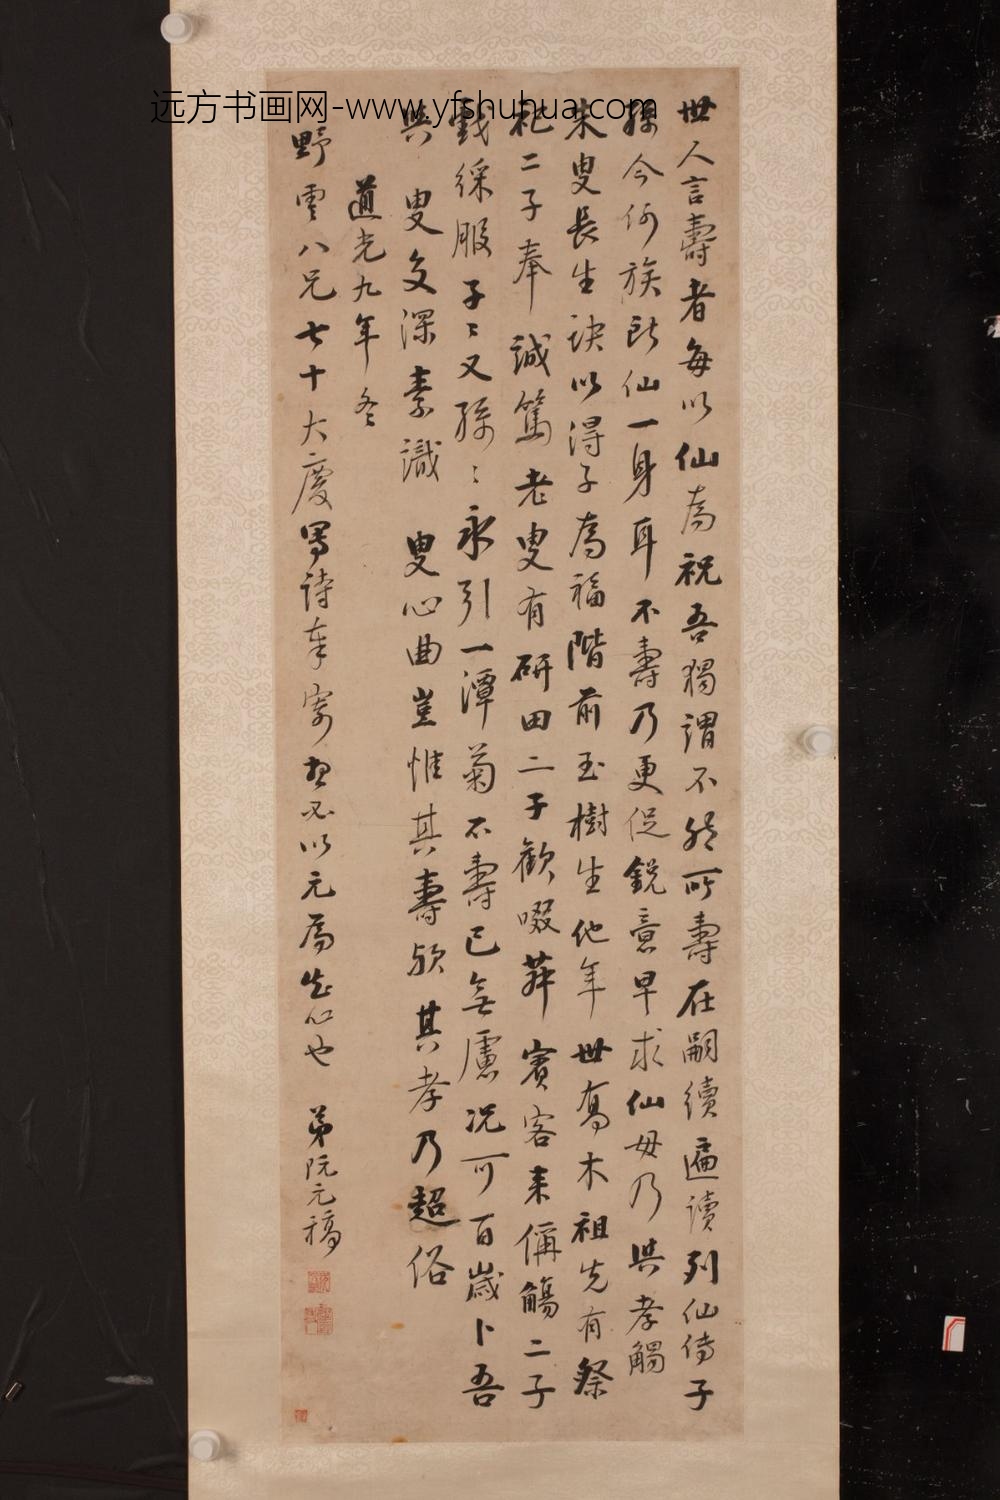 远方书画网-www.yfshuhua.com
世人言壽者每以仙為祝吾獨謂不然所壽在嗣續遍讀列仙傳子
孫今何族所仙一身耳不壽乃更促銳意早求仙毋乃與孝觸
朱叟長生訣以得子為福階前玉樹生他年世喬木祖先有祭
祀二子奉誠篤老叟有研田二子歡啜菽賓客來偁觴二子
戲綵服子〻又孫〻永引一潭菊不壽已無慮况可百歲卜吾
與叟交深素識叟心曲豈惟其壽欤其孝乃超俗
道光九年冬
野雲八兄七十大慶寫詩奉寄想必以元為知心也弟阮元稿